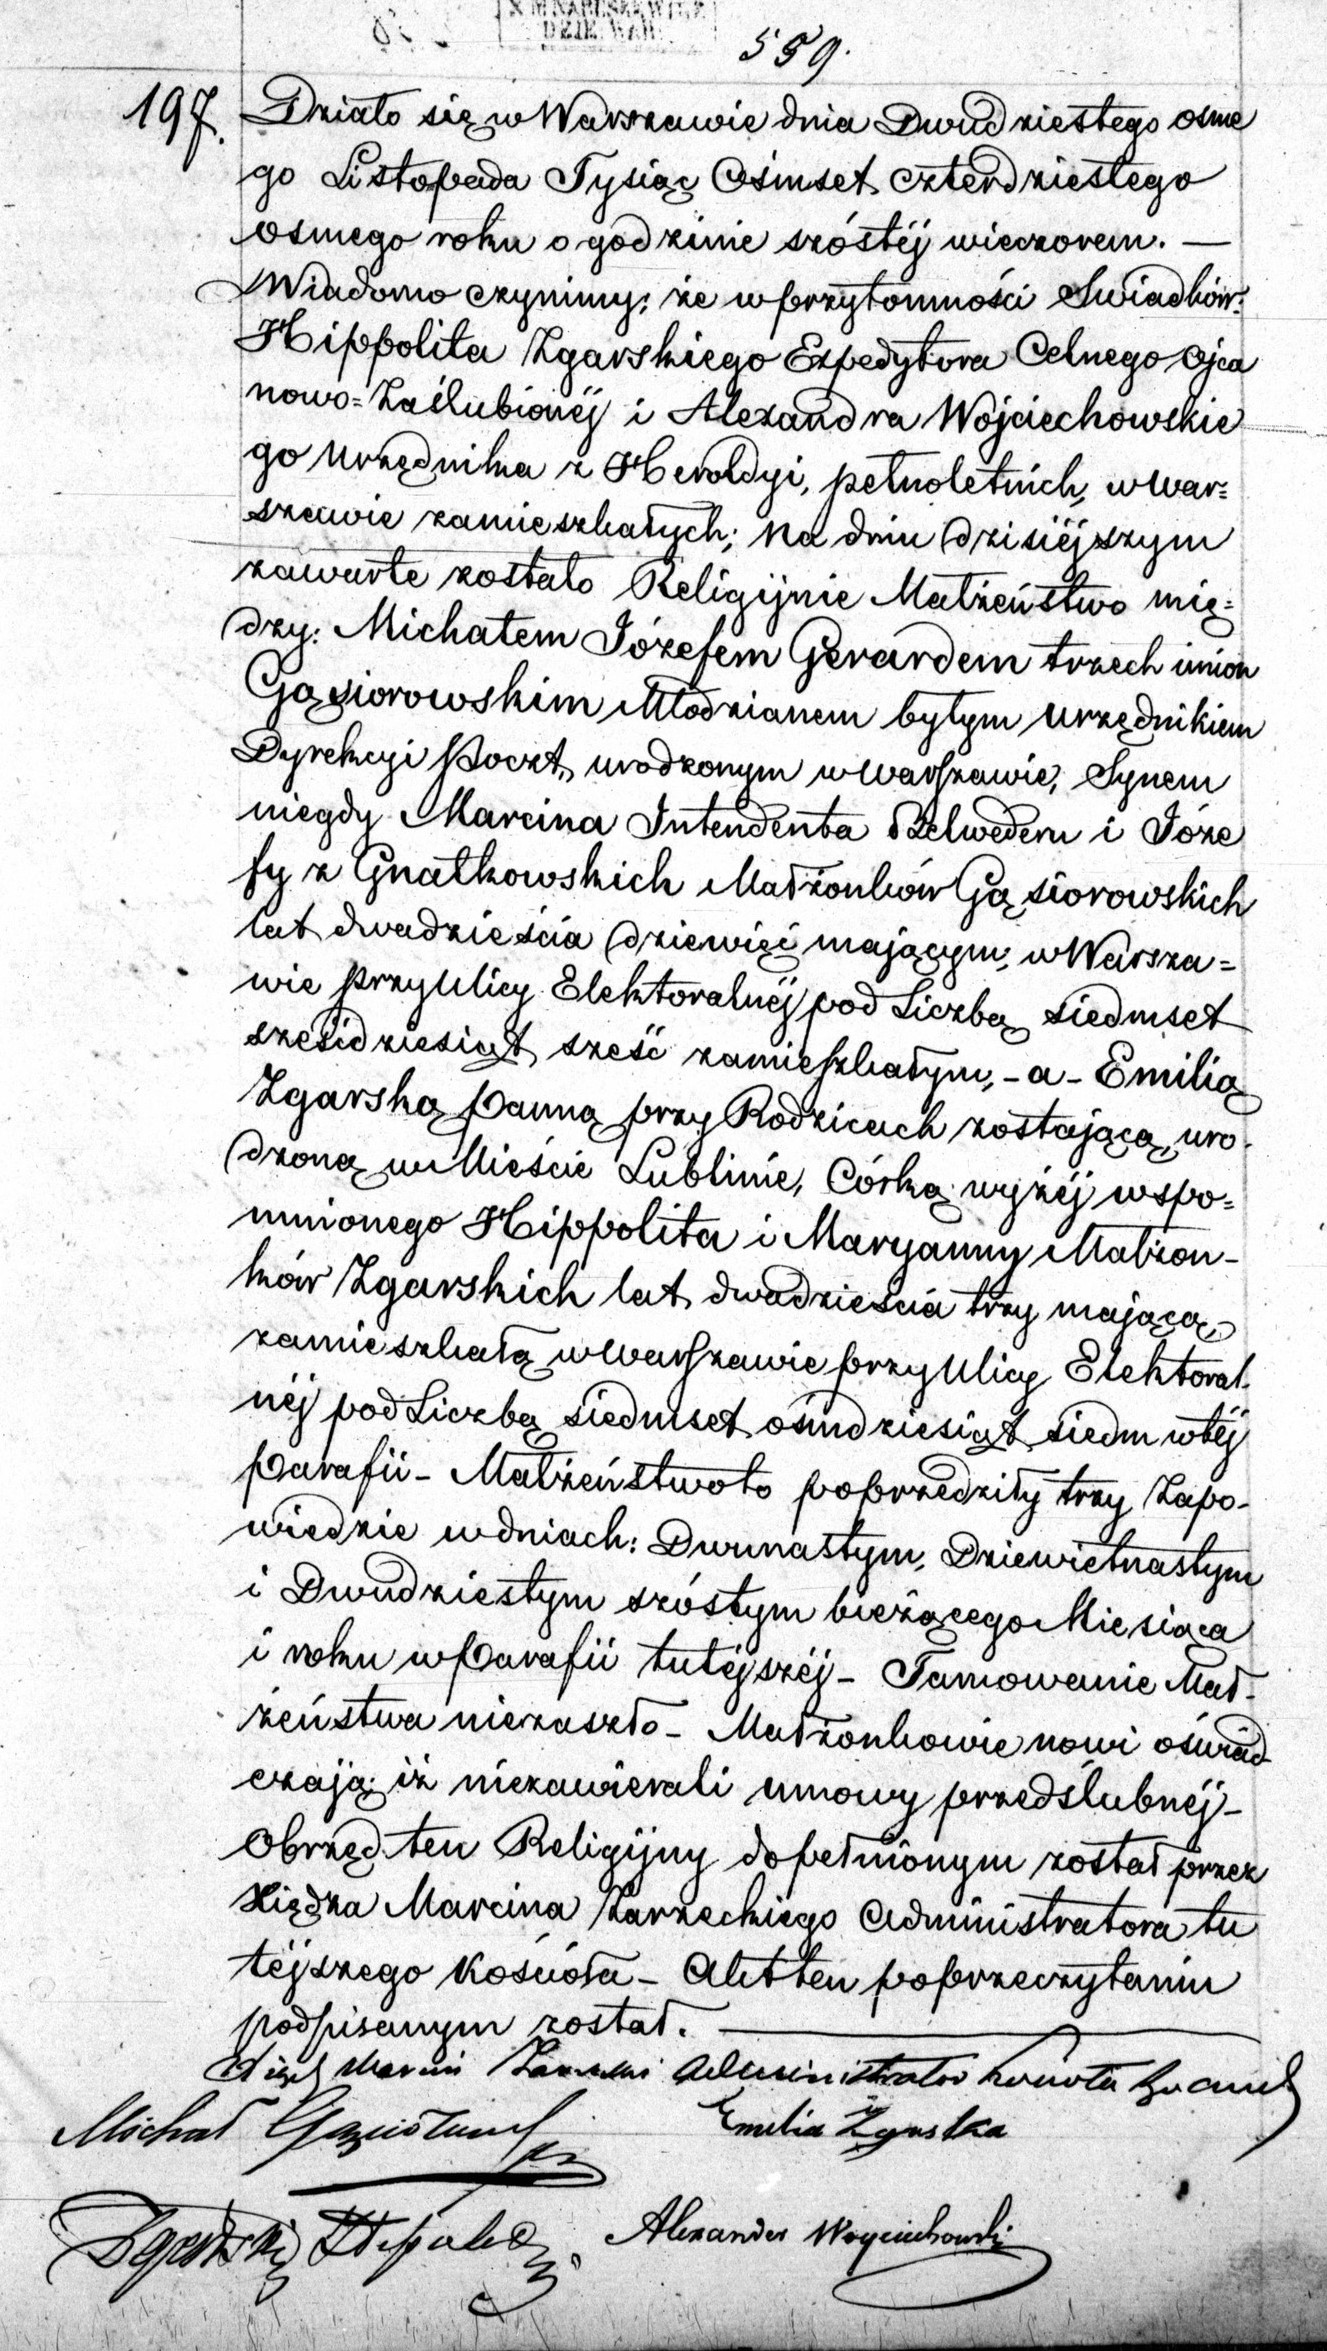 559.
197.
Działo się w Warszawie dnia Dwudziestego osme
go Listopada Tysiąc Ośmset czterdziestego
osmego roku o godzinie szóstéj wieczorem. —
Wiadomo czynimy; że w przytomności Swiadków:
Hippolita Zgarskiego Expedytora Celnego Ojca
nowo=Zaślubionéj i Alexandra Wojciechowskie
go Urzędnika z Heroldyi, pełnoletnich, w War=
szawie zamieszkałych; Na dniu dzisiéjszym
zawarte zostało Religijnie Małżeństwo mię=
dzy: Michałem Józefem Gerardem trzech imion
Gąsiorowskim Młodzianem byłym Urzędnikiem
Dyrekcyi Poczt, urodzonym w Warszawie, Synem
niegdy Marcina Intendenta Belwederu i Józe
fy z Gnatkowskich Małżonków Gąsiorowskich
lat dwadzieścia dziewięć mającym, w Warsza=
wie przy Ulicy Elektoralnéj pod Liczbą siedmset
sześćdziesiąt sześć zamieszkałym, - a - Emilią
Zgarską Panną przy Rodzicach zostającą, uro-
dzoną w Mieście Lublinie, Córką wyżéj wspo=
mnionego Hippolita i Maryanny Małżon-
ków Zgarskich lat dwadzieścia trzy mającą,
zamieszkałą w Warszawie przy Ulicy Elektoral-
néj pod Liczbą siedmset ośmdziesiąt siedm w téj
Parafii - Małżeństwo to poprzedziły trzy Zapo-
wiedzie w dniach: Dwunastym, Dziewietnastym
i Dwudziestym szóstym bieżącego Miesiąca
i roku w Parafii tutéjszéj - Tamowanie Mał-
żeństwa niezaszło - Małżonkowie nowi oświad
czają; iż niezawierali umowy przedślubnéj -
Obrzęd ten Religijny dopełnionym został przez
Xiędza Marcina Zarzeckiego Administratora tu
téjszego Kościoła - Akt ten po przeczytaniu
podpisanym został. —
Xiądz Marcin Administrator
Michał Emilia Zgarska
Zgarski Alexander Woyciechowski